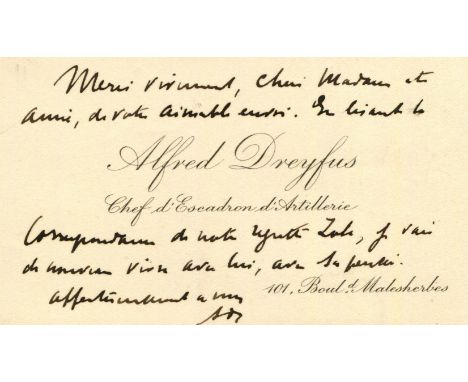 Merci vivement, chère Madame et
amie, de votre aimable envoi. En lisant la
Alfred Dreyfus
Chef d'Escadron d'Artillerie
Correspondance de notre regretté Zola, je vais
de nouveau vivre avec lui, avec sa pensée.
affectueusement à vous
101, Boul.d Malesherbes